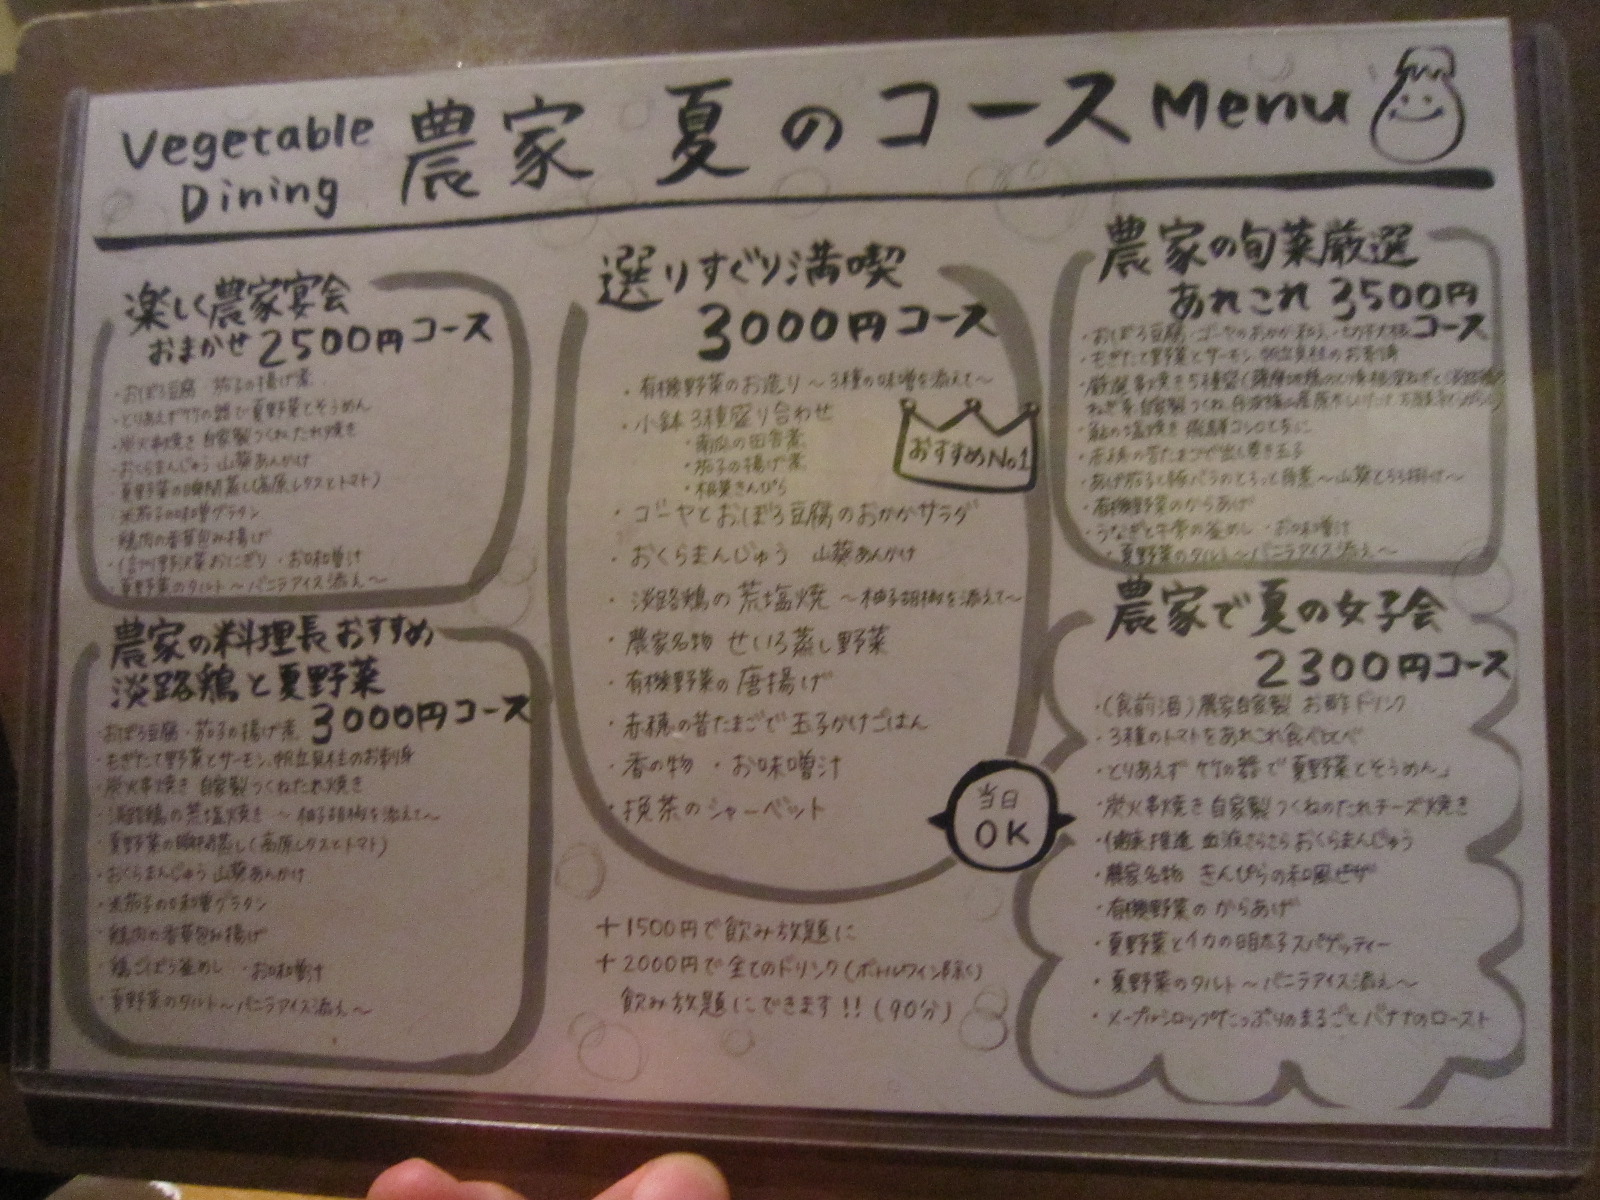 Vegetable
Dining
農家 夏のコース Menu
楽しく農家宴会
おまかせ 2500円コース
・おぼろ豆腐 茄子の揚げ煮
・とりあえず竹の器で夏野菜とそうめん
・炭火串焼き 自家製つくねたれ焼き
・おくらまんじゅう 山葵あんかけ
・夏野菜の瞬間蒸し(高原レタスとトマト)
・米茄子の味噌グラタン
・鶏肉の香草包み揚げ
・信州野沢菜おにぎり ・お味噌汁
・夏野菜のタルト〜バニラアイス添え〜
農家の料理長おすすめ
淡路鶏と夏野菜
3000円コース
・おぼろ豆腐・茄子の揚げ煮
・もぎたて野菜とサーモン、帆立貝柱のお刺身
・炭火串焼き 自家製つくねたれ焼き
・淡路鶏の荒塩焼き 〜柚子胡椒を添えて〜
・夏野菜の瞬間蒸し(高原レタスとトマト)
・おくらまんじゅう 山葵あんかけ
・米茄子の味噌グラタン
・鶏肉の香草包み揚げ
・鶏ごぼう釜めし ・お味噌汁
・夏野菜のタルト〜バニラアイス添え〜
選りすぐり満喫
3000円コース
・有機野菜のお造り〜3種の味噌を添えて〜
・小鉢3種盛り合わせ
・南瓜の田舎煮
・茄子の揚げ煮
・根菜きんぴら
おすすめNo1
・ゴーヤとおぼろ豆腐のおかかサラダ
・おくらまんじゅう 山葵あんかけ
・淡路鶏の荒塩焼 〜柚子胡椒を添えて〜
・農家名物 せいろ蒸し野菜
・有機野菜の唐揚げ
・赤穂の昔たまごで玉子かけごはん
・香の物 ・お味噌汁
・抹茶のシャーベット
当日
OK
+1500円で飲み放題に
+2000円で全てのドリンク(ボトルワイン除く)
飲み放題にできます!!(90分)
農家の旬菜厳選
あれこれ 3500円
コース
・おぼろ豆腐・ゴーヤのおかか和え・切干大根
・もぎたて野菜とサーモン、帆立貝柱のお刺身
・厳選串焼き5種盛
・鮎の塩焼き
・赤穂の昔たまごで出し巻き玉子
・あげ茄子と豚バラのとろっと角煮〜山葵とろろ掛け〜
・有機野菜のからあげ
・うなぎと牛蒡の釜めし ・お味噌汁
・夏野菜のタルト〜バニラアイス添え〜
農家で夏の女子会
2300円コース
・(食前酒)農家自家製 お酢ドリンク
・3種のトマトをあれこれ食べ比べ
・とりあえず 竹の器で夏野菜とそうめん」
・炭火串焼き 自家製つくねのたれチーズ焼き
・健康推進 血液さらさらおくらまんじゅう
・農家名物 きんぴらの和風ピザ
・有機野菜のからあげ
・夏野菜とイカの明太子スパゲッティー
・夏野菜のタルト〜バニラアイス添え〜
・メープルシロップたっぷりのまるごとバナナのロースト